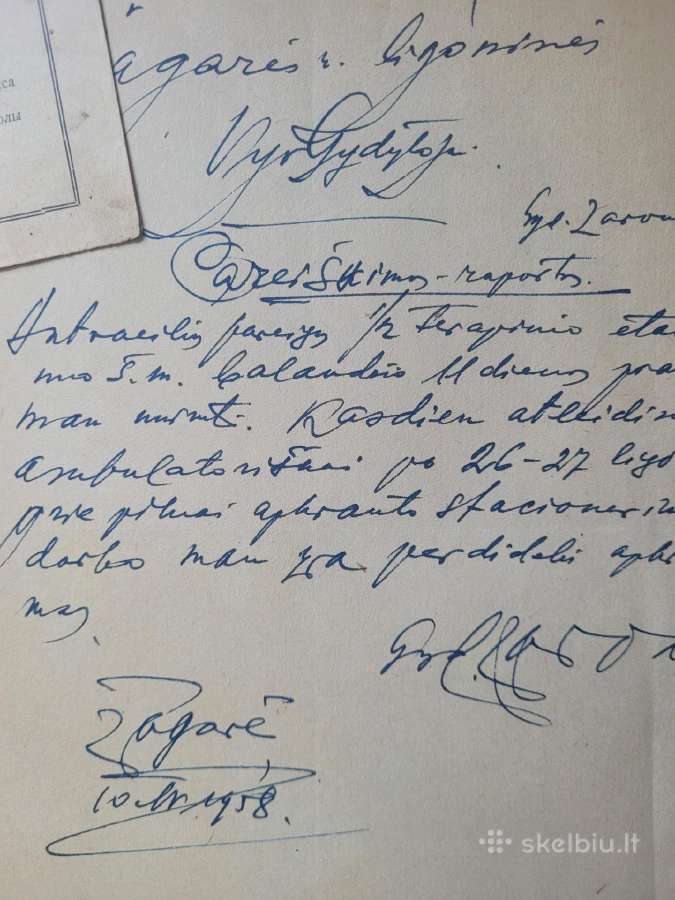 са
олы
agarės r. ligoninės
Vyr. Gydytojui
Gyd. Zarom
Pareiškimas-raportas.
Antraeilių pareigų 1/2 terapinio eta
nuo š.m. balandžio 11 dienos pra
man nuimti. Kasdien atleidim
ambulatoriškai po 26-27 ligo
prie pilnai apkrauto stacionarin
darbo man yra perdidelis apkr
mas.
Gyd.
Žagarė
10.IV.1958.
skelbiu.lt